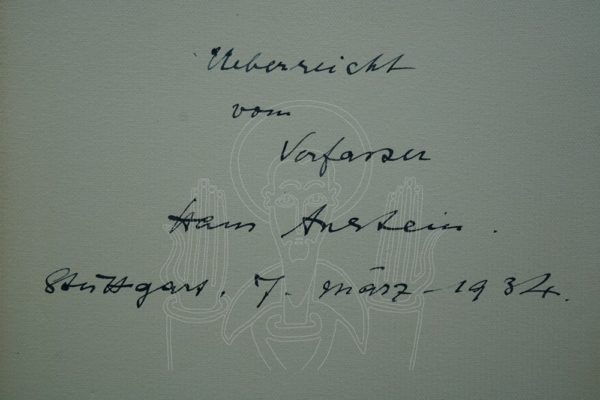 Ueberreicht
vom
Verfasser
Hans
Stuttgart. 7. März - 1934.